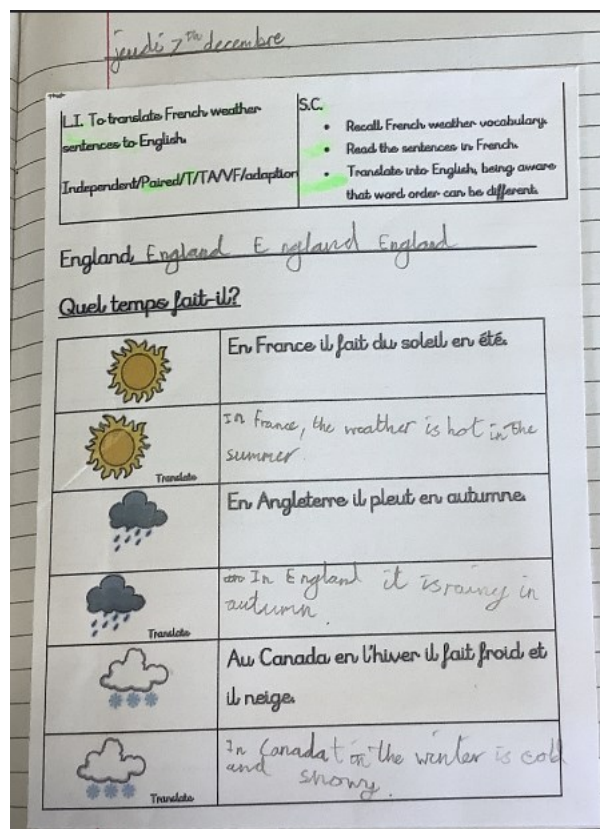 jeudi 7th decembre
L.I. To translate French weather
sentences to English.
Independent/Paired/T/TA/VF/adaption
S.C.
• Recall French weather vocabulary.
• Read the sentences in French.
• Translate into English, being aware
that word order can be different.
England England E ngland England
Quel temps fait-il?
En France il fait du soleil en été.
In france, the weather is hot in the
summer.
Translate
En Angleterre il pleut en automne.
In England it is rainy in
autumn.
Translate
Au Canada en l'hiver il fait froid et
il neige.
In Canada in the winter is cold
and snowy.
Translate